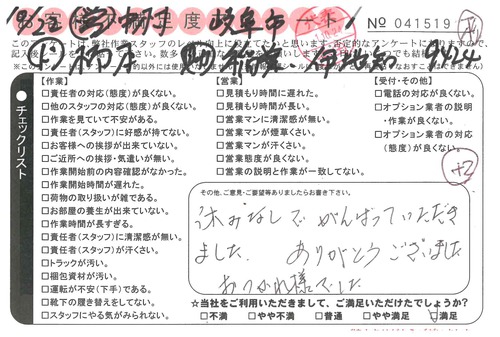 No 041519
チェックリスト
【作業】
□責任者の対応(態度)が良くない。
□他のスタッフの対応(態度)が良くない。
□作業を見ていて不安がある。
□責任者(スタッフ)に好感が持てない。
□お客様への挨拶が出来ていない。
□ご近所への挨拶・気遣いが無い。
□作業開始前の内容確認がなかった。
□作業開始時間が遅れた。
□荷物の取り扱いが雑である。
□お部屋の養生が出来ていない。
□作業時間が長すぎる。
□責任者(スタッフ)に清潔感が無い。
□責任者(スタッフ)が汗くさい。
□トラックが汚い。
□梱包資材が汚い。
□運転が不安(下手)である。
□靴下の履き替えをしてない。
□スタッフにやる気がみられない。
【営業】
□見積もり時間に遅れた。
□見積もり時間が長い。
□営業マンに清潔感が無い。
□営業マンが煙草くさい。
□営業マンが汗くさい。
□営業態度が良くない。
□営業の説明と作業が一致してない。
【受付・その他】
□電話の対応が良くない。
□オプション業者の説明
・作業が良くない。
□オプション業者の対応
(態度)が良くない。
+2
その他、ご意見・ご要望等ありましたらお書き下さい。
休みなしで がんばっていただき
ました。 ありがとうございました
おつかれ様でした
☆当社をご利用いただきまして、ご満足いただけたでしょうか?
□不満 □やや不満 □普通 □やや満足 □満足